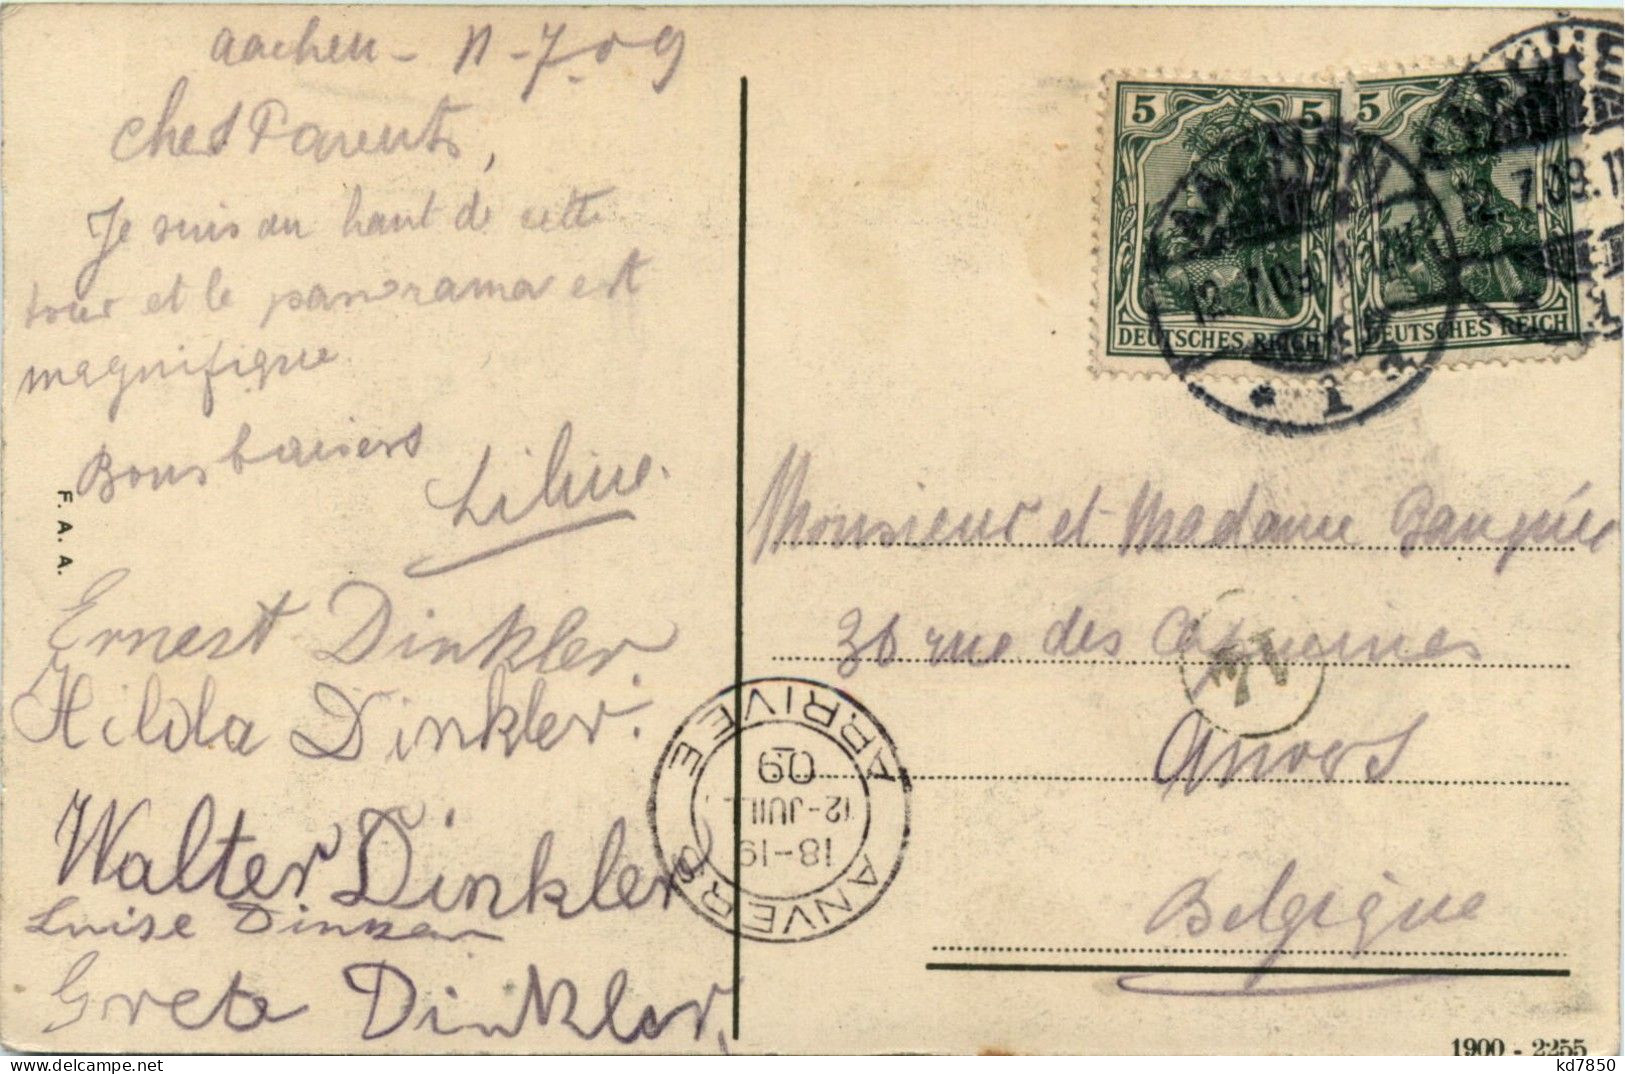 Aachen - 11-7-09
Chers Parents,
Je suis au haut de cette
tour et le panorama est
magnifique.
Bons baisers
Liline.
F. A. A.
Ernest Dinkler.
Hilda Dinkler.
Walter Dinkler
Luise Dinkler
Grete Dinkler,
5 5
DEUTSCHES REICH
5
DEUTSCHES REICH
AACHEN
12.7.09.11-12V.
* 1 a
12.7.09.11
Monsieur et Madame
36 rue des
Anvers
Belgique
ANVERS
18-19
12-JUIL
09
ARRIVEE
1900 - 2255
kd7850